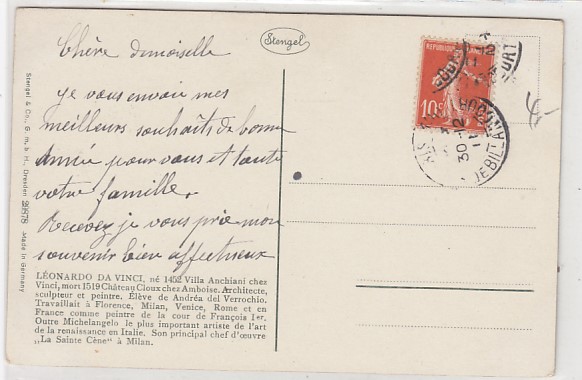 Chère dmoiselle
Stengel
je vous envoie mes
meilleurs souhaits de bonne
année pour vous et toute
votre famille.
Recevez je vous prie mon
souvenir bien affectueux
REPUBLIQUE
10c
30-12
Stengel & Co., G. m. b. H., Dresden Made in Germany
LÉONARDO DA VINCI, né 1452 Villa Anchiani chez
Vinci, mort 1519 Château Cloux chez Amboise. Architecte,
sculpteur et peintre. Élève de Andréa del Verrochio.
Travaillait à Florence, Milan, Venice, Rome et en
France comme peintre de la cour de François Ier.
Outre Michelangelo le plus important artiste de l'art
de la renaissance en Italie. Son principal chef d'œuvre
„La Sainte Cène" à Milan.